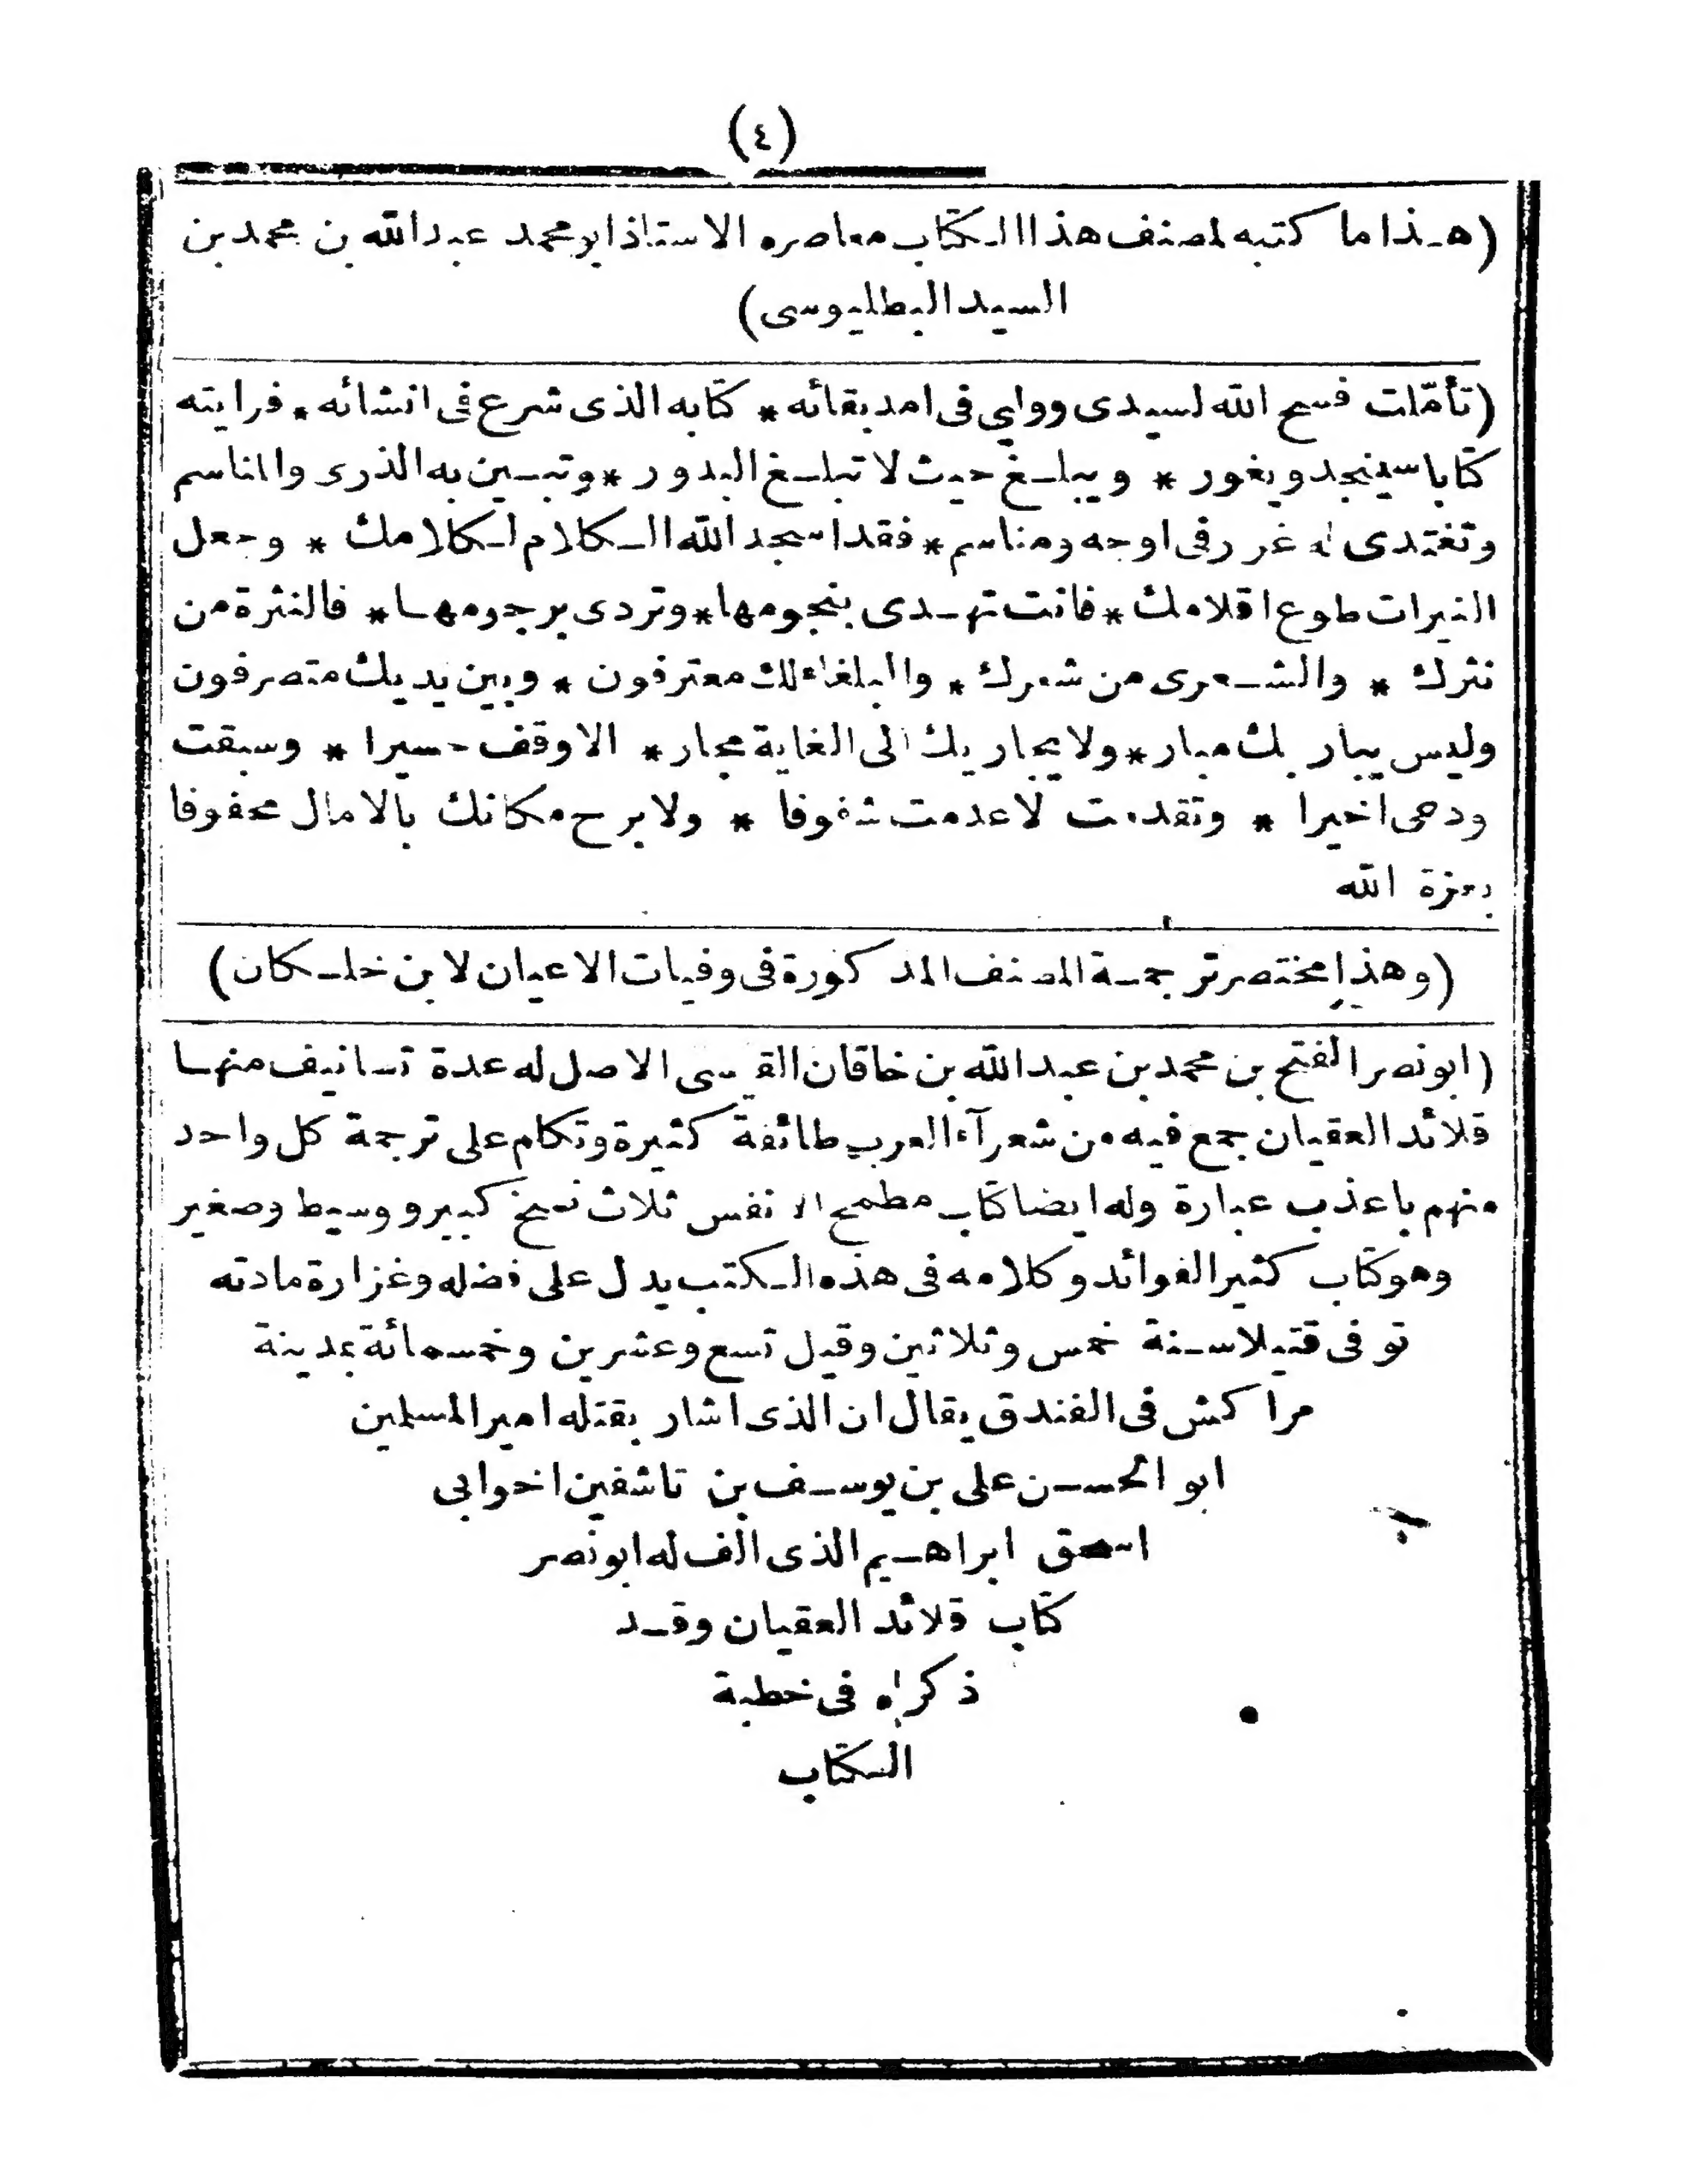 (٤)
(هذا ما كتبه لمصنف هذا الكتاب معاصره الاستاذ ابو محمد عبد الله بن محمد بن
السيد البطليوسى)
(تأمّلت فسح الله لسيدى ووليى فى امد بقائه * كتابه الذى شرع فى انشائه * فرايته
كتابا سينجد ويغور * ويبلغ حيث لا تبلغ البدور * وتبين به الذرى والمناسم
وتغتدى له غرر فى اوجه ومناسم * فقد اسجد الله الكلام لكلامك * وجعل
النيرات طوع اقلامك * فانت تهدى بنجومها * وتردى برجومها * فالنثرة من
نثرك * والشعرى من شعرك * والبلغاء لك معترفون * وبين يديك متصرفون
وليس يباريك مبار * ولا يجاريك الى الغاية مجار * الا وقف حسيرا * وسبقت
ودعى اخيرا * وتقدمت لا عدمت شفوفا * ولا برح مكانك بالامال محفوفا
بعزة الله
(وهذا مختصر ترجمة المصنف المذكورة فى وفيات الاعيان لابن خلكان)
(ابو نصر الفتح بن محمد بن عبد الله بن خاقان القيسى الاصل له عدة تسانيف منها
قلائد العقيان جمع فيه من شعرآء العرب طائفة كثيرة وتكام على ترجمة كل واحد
منهم باعذب عبارة وله ايضا كتاب مطمح الانفس ثلاث نسخ كبير ووسيط وصغير
وهو كتاب كثير الفوائد وكلامه فى هذه الكتب يدل على فضله وغزارة مادته
توفى قتيلا سنة خمس وثلاثين وقيل تسع وعشرين وخمسمائة بمدينة
مراكش فى الفندق يقال ان الذى اشار بقتله امير المسلمين
ابو الحسن على بن يوسف بن تاشفين اخو ابى
اسحق ابراهيم الذى الف له ابو نصر
كتاب قلائد العقيان وقد
ذكراه فى خطبة
الكتاب